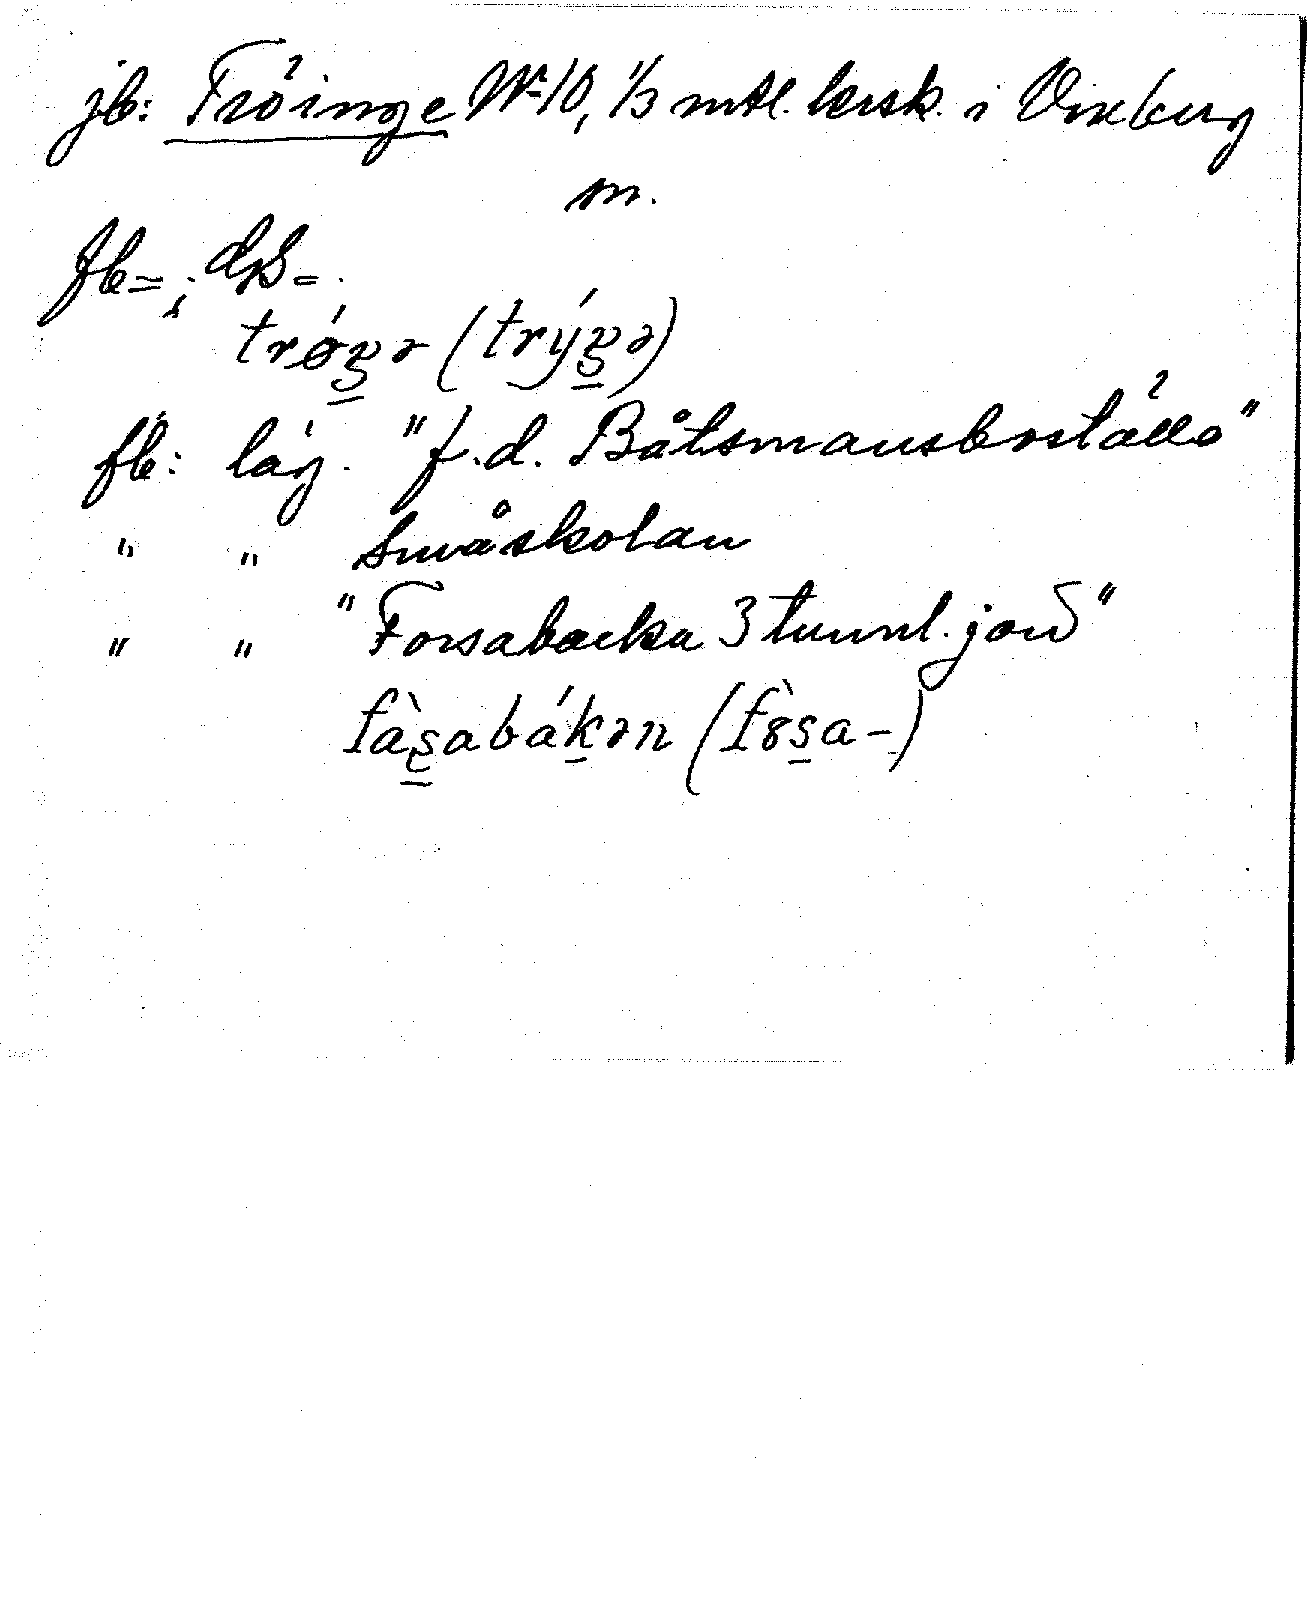 jb: Tröinge No 10, 1/3 mtl. kr.sk. i Vixberg
m.
fb=; dss=.
trǿŋə (trýŋə)
fb: läg. "f.d. Båtsmansboställe"
" " Småskolan
" " "Forsabacka 3 tunnl. jord"
fàs̱abáḵən (fo̊s̱a-)